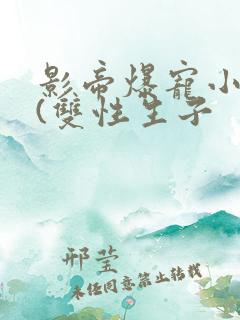 影帝爆寵小
(雙性生子
邢莹
未经同意禁止转载